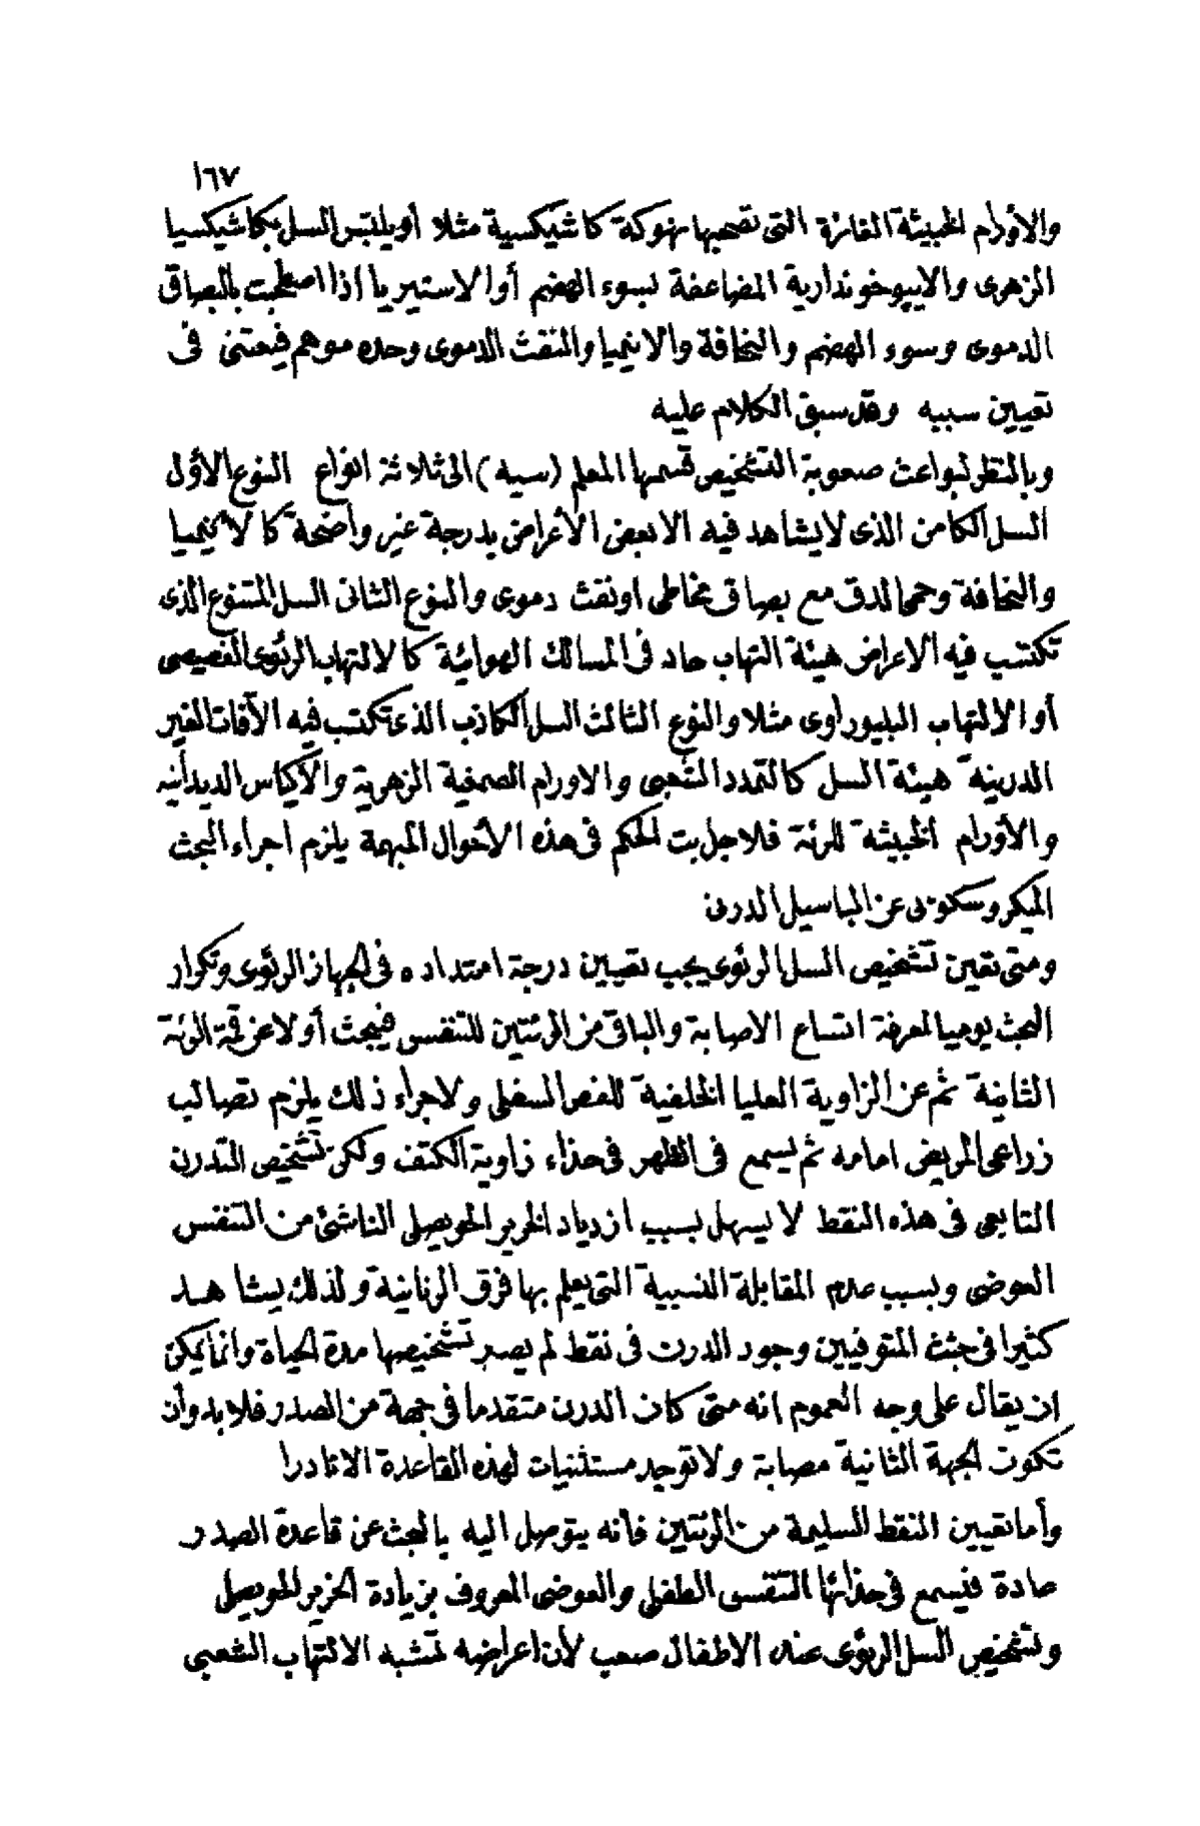 ١٦٧
والأورام الخبيثة الغائرة التى تصحبها نهوكة كاشيكسية مثلا أو يلتبس السل بكاشيكسيا
الزهرى والايپوخوندارية المضاعفة بسوء الهضم أو الاستيريا اذا اصطحبت بالبصاق
الدموى وسوء الهضم والنحافة والانيميا والنفث الدموى وحده موهم فيعتنى فى
تعيين سببه وقد سبق الكلام عليه
وبالنظر لبواعث صعوبة التشخيص قسمها المعلم (سيه) الى ثلاثة انواع النوع الأول
السل الكامن الذى لا يشاهد فيه الا بعض الأعراض بدرجة غير واضحة كالأنيميا
والنحافة وحمى الدق مع بصاق مخاطى او نفث دموى والنوع الثانى السل المتنوع الذى
تكتسب فيه الاعراض هيئة التهاب حاد فى المسالك الهوائية كالالتهاب الرئوى الفصيصى
أو الالتهاب البليوراوى مثلا والنوع الثالث السل الكاذب الذى تكتسب فيه الآفات الغير
الدرنية هيئة السل كالتمدد الشعبى والاورام الصمغية الزهرية والأكياس الديدانيه
والأورام الخبيثة للرئة فلاجل بت الحكم فى هذه الأحوال المبهمة يلزم اجراء البحث
الميكروسكوبى عن الباسيل الدرنى
ومتى تعين تشخيص السل الرئوى يجب تعيين درجة امتداده فى الجهاز الرئوى وتكرار
البحث يوميا لمعرفة اتساع الاصابة والباقى من الرئتين للتنفس فيبحث أولا عن قمة الرئة
الثانية ثم عن الزاوية العليا الخلفية للفص السفلى ولاجراء ذلك يلزم تصالب
زراعى المريض امامه ثم يسمع فى الظهر فى حذاء زاوية الكتف ولكن تشخيص التدرن
التابعى فى هذه النقط لا يسهل بسبب ازدياد الخرير الحويصلى الناشئ من التنفس
العوضى وبسبب عدم المقابلة النسبية التى يعلم بها فرق الرنانية ولذلك يشاهد
كثيرا فى جثث المتوفيين وجود الدرن فى نقط لم يصر تشخيصها مدة الحياة وانما يمكن
ان يقال على وجه العموم انه متى كان الدرن متقدما فى جهة من الصدر فلابد وأن
تكون الجهة الثانية مصابة ولا توجد مستثنيات لهذه القاعدة الا نادرا
وأما تعيين النقط السليمة من الرئتين فانه يتوصل اليه بالبحث عن قاعدة الصدر
عادة فيسمع فى حذائها التنفسى الطفلى والعوضى المعروف بزيادة الخرير الحويصلى
وتشخيص السل الرئوى عند الاطفال صعب لأن اعراضه تشبه الالتهاب الشعبى